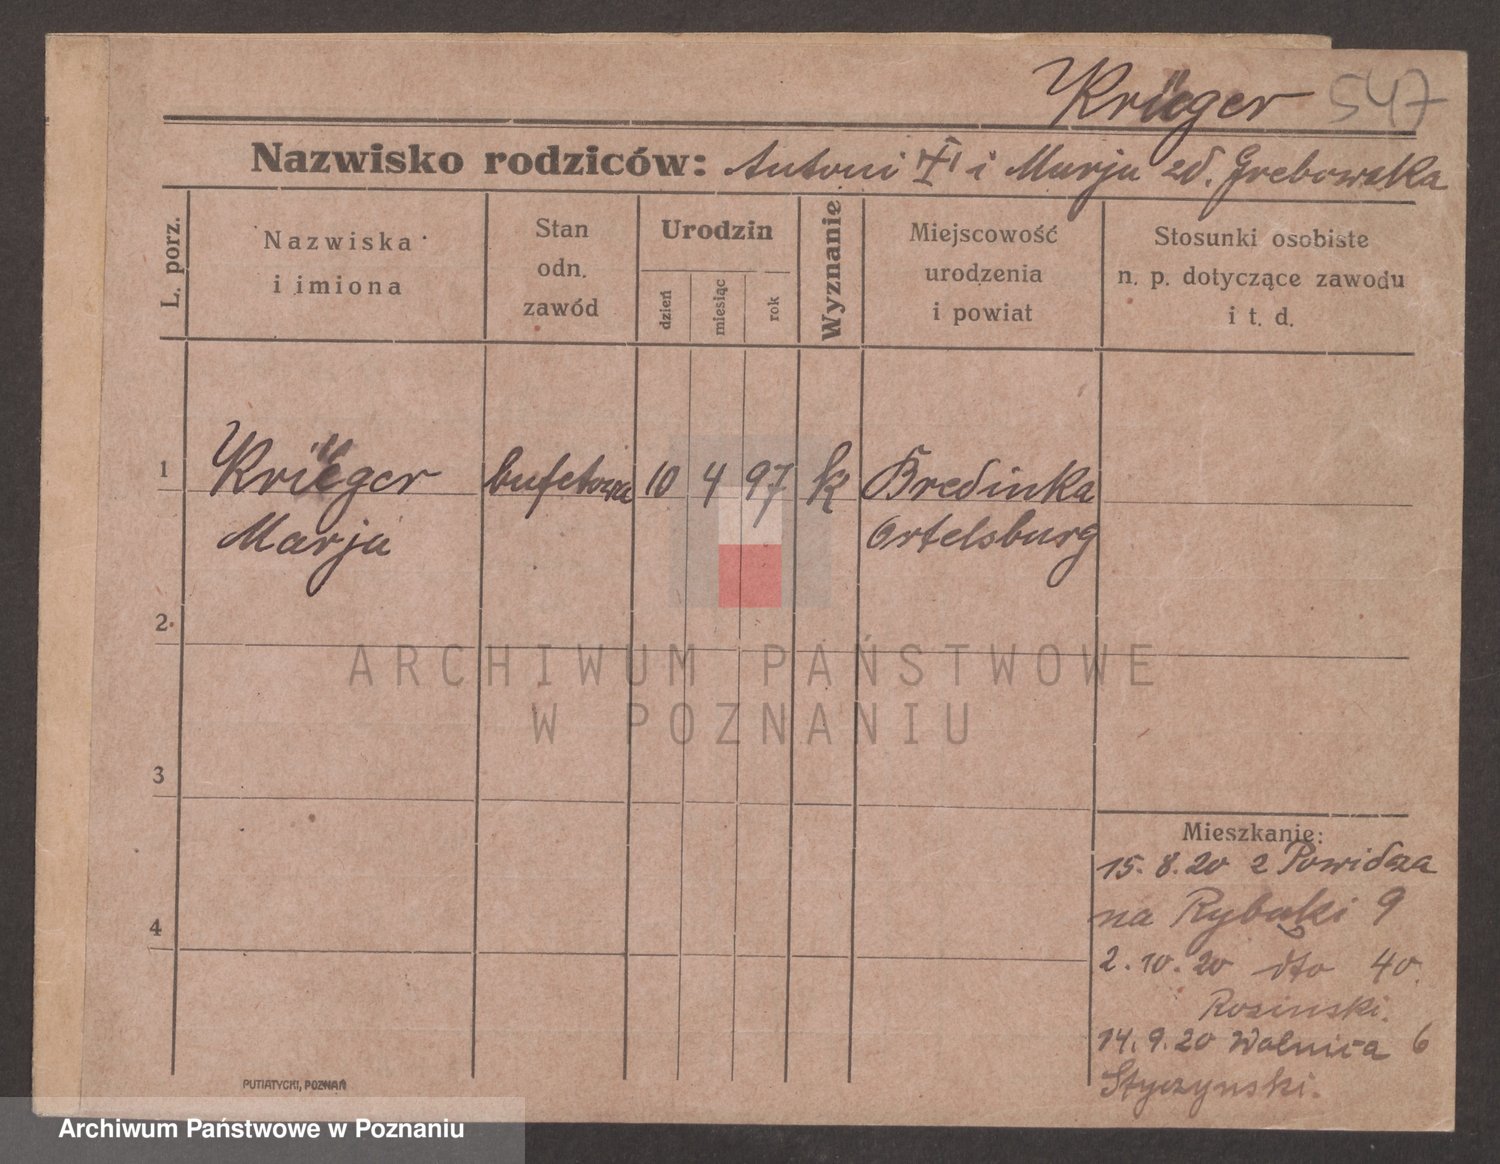 Krüeger 547
Nazwisko rodziców: Antoni i Marja zd. Grebowska
L. porz.
Nazwiska
i imiona
Stan
odn.
zawód
Urodzin
dzień
miesiąc
rok
Wyznanie
Miejscowość
urodzenia
i powiat
Stosunki osobiste
n. p. dotyczące zawodu
i t. d.
1
Krüeger
Marja
bufetowa
10 4 97 k
Bredinka
Ortelsburg
2.
3
4
Mieszkanie:
15. 8. 20 z Powidza
na Rybaki 9
2. 10. 20 dto 40.
Rosinski.
14. 9. 20 Wolnica 6
Styczynski.
PUTIATYCKI, POZNAŃ
ARCHIWUM PAŃSTWOWE
W POZNANIU
Archiwum Państwowe w Poznaniu